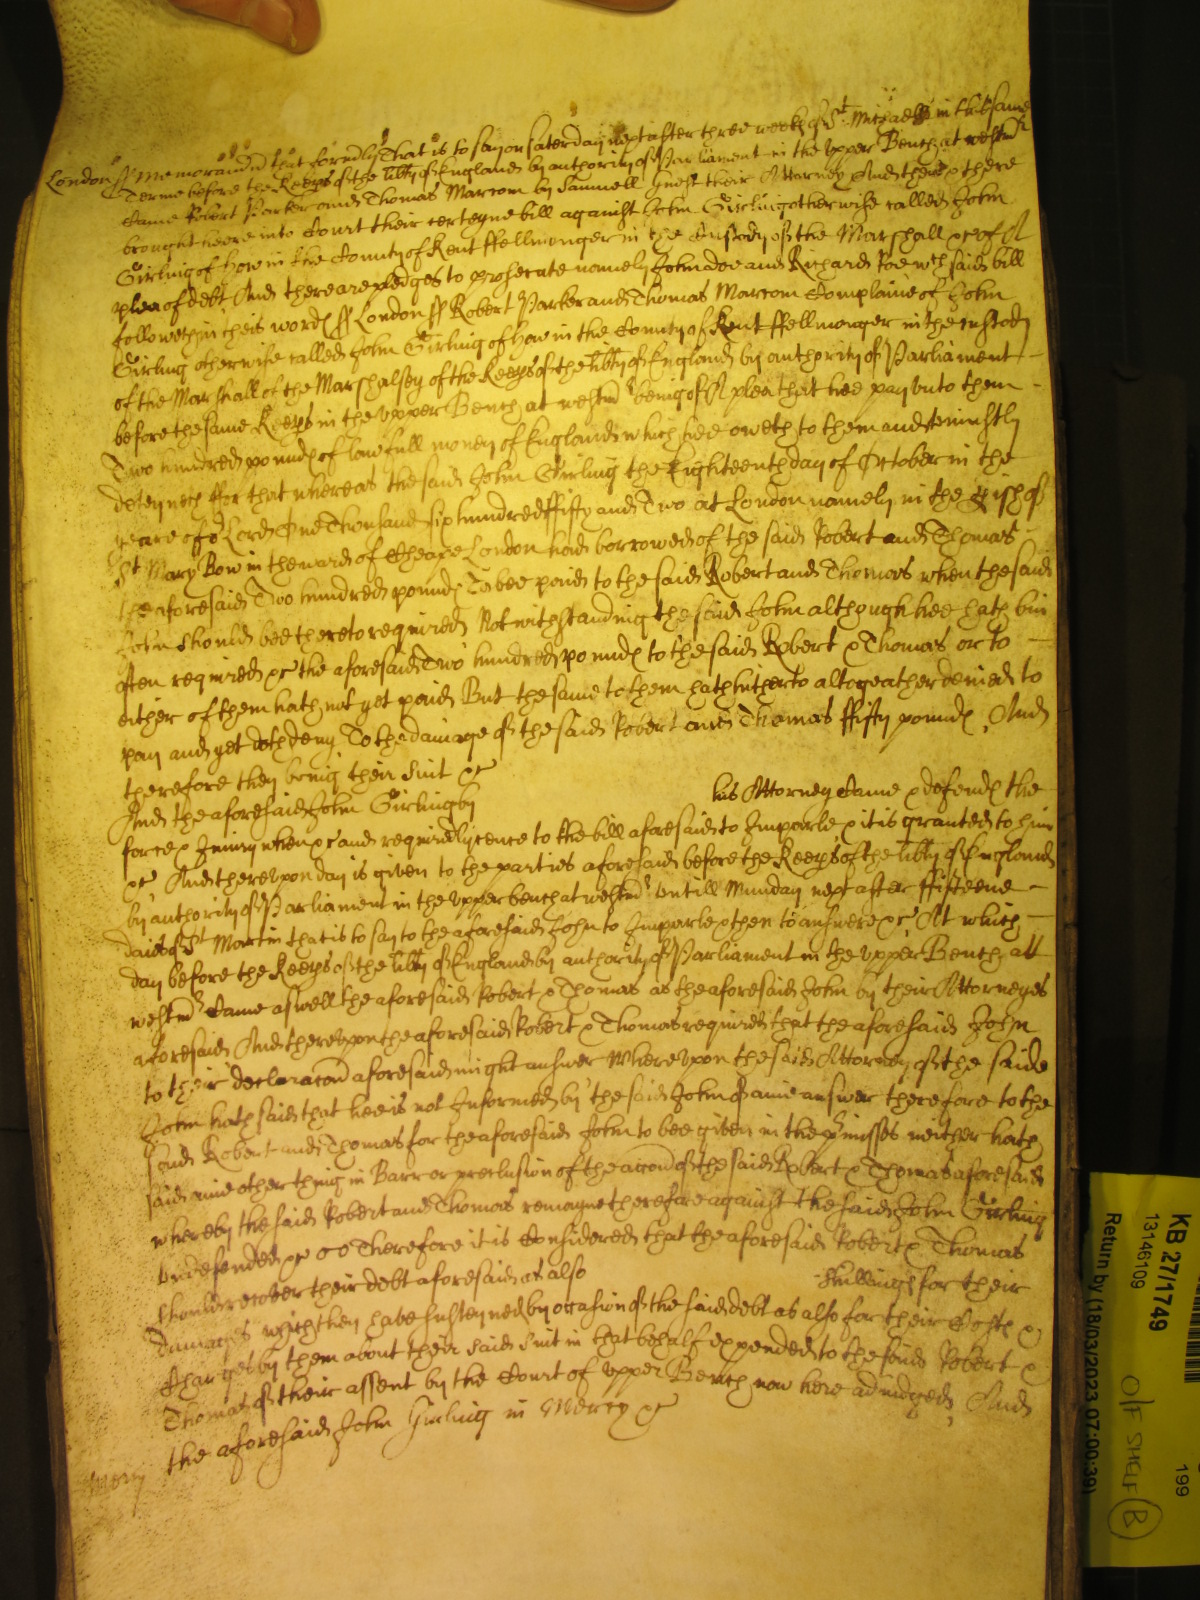 London ss Memorandd that formerly That is to say on Saterday next after three weekes of St. Michaell in this same
Terme before the Keeps of the libty of England by authority of Parliament in the Upper Bench at Westmr
Came Robert Parker and Thomas Marcom by Samuell Guest their Attorney And then & there
brought heere into Court their certeyne bill against John Girling otherwise called John
Girling of How in the County of Kent ffellmonger in the Custody of the Marshall &c of A
plea of debt And there are pledges to prosecute namely John doe and Richard Roe wch said bill
followeth in theis words ss London ss Robert Parker and Thomas Marcom Complaine of John
Girling otherwise called John Girling of How in the County of Kent ffellmonger in the custody
of the Marshall of the Marshalsey of the Keeps of the libty of England by authority of Parliament
before the same Keeps in the Upper Bench at Westmr being of A plea that hee pay unto them
Two hundred pounds of lawfull money of England which hee oweth to them and uniustly
deteyneth ffor that whereas the said John Girling the Eighteenth day of October in the
yeare of or Lord One Thousand six hundred ffifty and Two at London namely in the pish of
St Mary Bow in the ward of Cheape London had borrowed of the said Robert and Thomas
the aforesaid Two hundred pounds To bee paid to the said Robert and Thomas when the said
John should bee thereto required Notwithstanding the said John although hee hath bin
often required &c the aforesaid Two hundred pounds to the said Robert & Thomas or to
either of them hath not yet paid But the same to them hath hitherto altogeather denied to
pay and yet doth deny To the damage of the said Robert and Thomas ffifty pounds And
therefore they bring their suit &c
And the aforesaid John Girling by his Attorney Came & defends the
force & Iniury when &c and required lycence to the bill aforesaid to Imparle & it is granted to him
&c And thereupon day is given to the parties aforesaid before the Keeps of the libty of England
by authority of Parliament in the upper bench at Westmr untill Munday next after ffifteene
daies of St Martin that is to say to the aforesaid John to Imparle & then to answere &c At which
day before the Keeps of the libty of England by authority of Parliament in the upper Bench att
Westmr Came aswell the aforesaid Robert & Thomas as the aforesaid John by their Attorneyes
aforesaid And thereupon the aforesaid Robert & Thomas required that the aforesaid John
to their declaracon aforesaid might answer Whereupon the said Attorney of the saide
John hath said that hee is not Informed by the said John of anie answer therefore to the
said Robert and Thomas for the aforesaid John to bee given in the pmisses neither hath
said anie other thing in Barr or preclusion of the accon of the said Robert & Thomas aforesaid
whereby the said Robert and Thomas remayne therefore against the said John Girling
undefended &c Therefore it is Considered that the aforesaid Robert & Thomas
should recover their debt aforesaid as also shillings for their
damages which they have susteyned by occasion of the said debt as also for their Costs &
Charges by them about their said suit in that behalf expended to the said Robert &
Thomas of their assent by the Court of upper Bench now here adiudged And
the aforesaid John Girling in Mercy &c
Mercy
KB 27/1749
13146109
199
Return by (18/03/2023 07:00:39)
O/F SHELF B